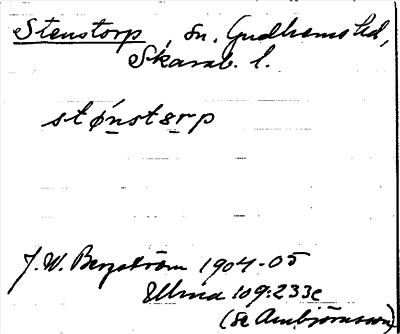 Stenstorp, sn. Gudhems hd,
Skarab. l.
stǿnstɵrp
J. W. Bergström 1904-05
Ullma 109:233c
(Se Ambjörnsson)